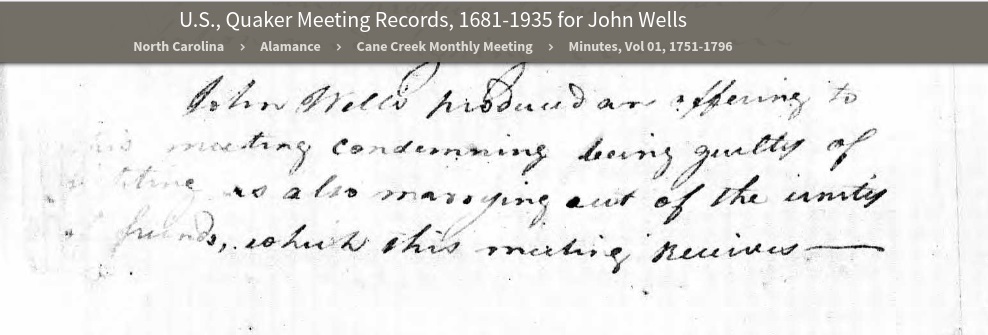 U.S., Quaker Meeting Records, 1681-1935 for John Wells
North Carolina > Alamance > Cane Creek Monthly Meeting > Minutes, Vol 01, 1751-1796
John Wells produced an offering to
this meeting condemning being guilty of
as also marrying out of the unity
of friends, which this meeting Receives